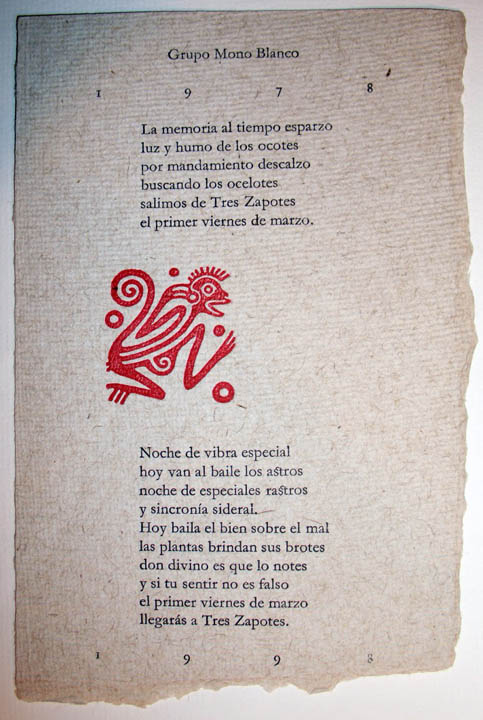 Grupo Mono Blanco
1 9 7 8
La memoria al tiempo esparzo
luz y humo de los ocotes
por mandamiento descalzo
buscando los ocelotes
salimos de Tres Zapotes
el primer viernes de marzo.
Noche de vibra especial
hoy van al baile los astros
noche de especiales rastros
y sincronía sideral.
Hoy baila el bien sobre el mal
las plantas brindan sus brotes
don divino es que lo notes
y si tu sentir no es falso
el primer viernes de marzo
llegarás a Tres Zapotes.
1 9 9 8